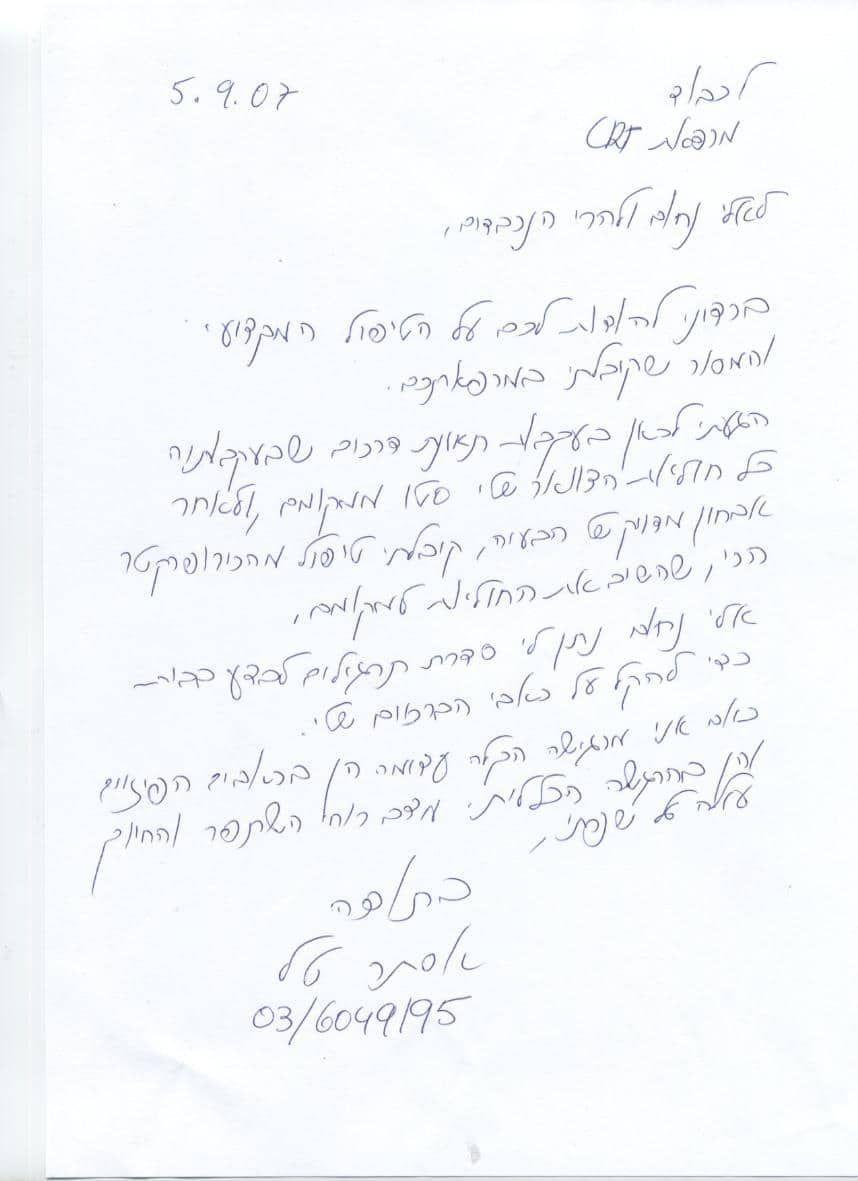 5.9.07
לכבוד
מרפאת CRT
לאלי נחום ולהרי הנכבדים,
ברצוני להודות לכם על הטיפול המקצועי
והמסור שקיבלתי במרפאתכם.
הגעתי לכאן בעקבות תאונת דרכים שבעקבותיה
כל חוליות הצוואר שלי סטו ממקומם, ולאחר
אבחון מדויק של הבעיה, קיבלתי טיפול מהכירופרקטר
הרי, שהשיב את החוליות למקומם,
אלי נחום נתן לי סדרת תרגילים לבצע בבית
כדי להקל על כאבי הברכיים שלי.
כאב אני מרגישה הקלה עצומה הן בכאבים הפיזיים
והן בהרגשה הכללית. מצב רוחי השתפר והחיוך
עלה על שפתי,
בתודה
אסתר טל
03/6049195